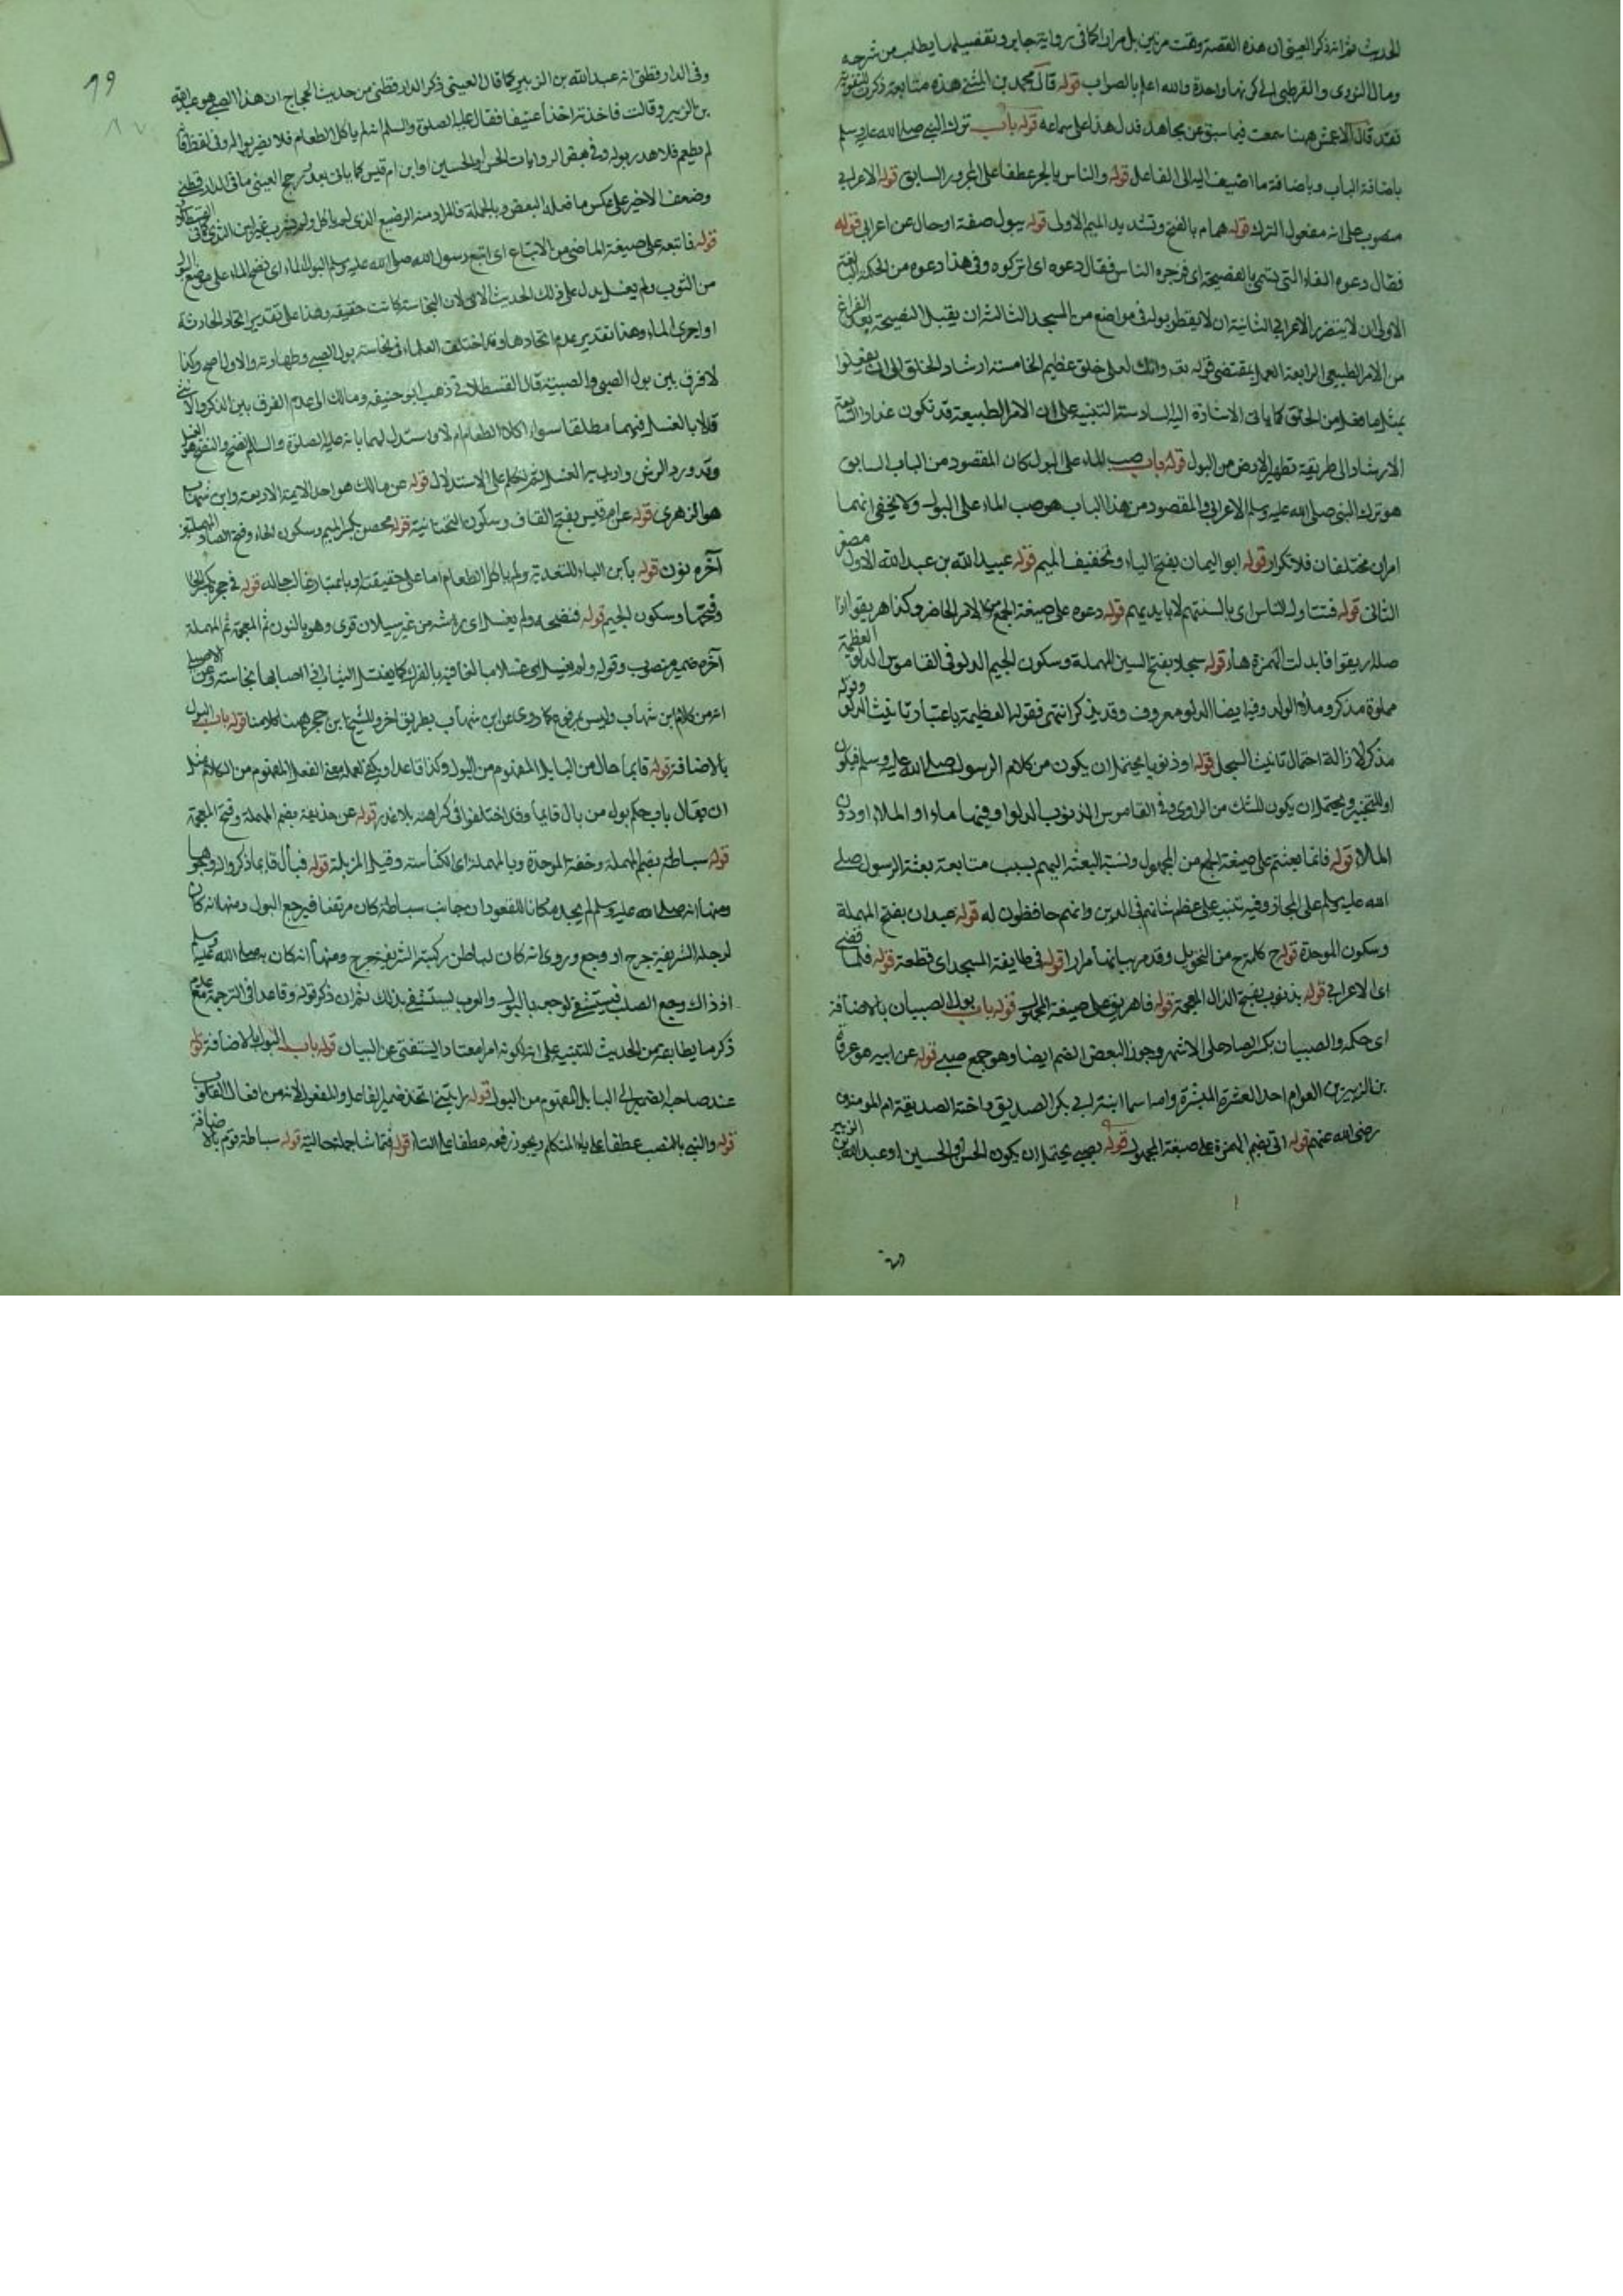 الحديث ثم انه ذكر العيني ان هذه القصة وقعت مرتين بل مرارا كما في رواية جابر وتفصيلها يطلب من شرحه
ومال النووي والقرطبي الى كونها واحدة والله اعلم بالصواب قوله قال محمد بن المثنى هذه متابعة ذكرت للتقوية
فقد قال الاعمش ههنا سمعت فيما سبق عن مجاهد فدل هذا على سماعه قوله باب ترك النبي صلى الله عليه وسلم
باضافة الباب وباضافة ما اضيف اليه الى الفاعل قوله والناس بالجر عطفا على المجرور السابق قوله الاعرابي
منصوب على انه مفعول الترك قوله همام بالفتح وتشديد الميم الاولى قوله يبول صفة او حال عن اعرابي قوله
فقال دعوه الفاء التي تسمى بالفصيحة اي فزجره الناس فقال دعوه اي اتركوه وفي هذا دعوه من الحكمة البالغة
الاولى ان لا يتضرر الاعرابي الثانية ان لا يقطر بوله في مواضع من المسجد الثالثة ان يقبل النصيحة بعد الفراغ
من الامر الطبيعي الرابعة العمل بمقتضى قوله تعه وانك لعلى خلق عظيم الخامسة ارشاد الخلق الى ان يفعلوا
بمثل ما فعل من الخلق كما ياتي الاشارة اليه السادسة التنبيه على ان الامر الطبيعة قد تكون عذرا السابعة
الارشاد الى طريقة تطهير الارض من البول قوله باب صب الماء على البول كان المقصود من الباب السابق
هو ترك النبي صلى الله عليه وسلم الاعرابي والمقصود من هذا الباب هو صب الماء على البول ولا يخفى انهما
امران مختلفان فلا تكرار قوله ابو اليمان بفتح الياء وتخفيف الميم قوله عبيد الله بن عبد الله الاول مصغر
الثاني قوله فتناوله الناس اي بالسنتهم لا بايديهم قوله دعوه على صيغة الجمع من الامر الحاضر وكذا هريقوا اذ
اصله اريقوا فابدلت الهمزة هاء قوله سجلا بفتح السين المهملة وسكون الجيم الدلو في القاموس الدلو العظيمة
مملوة مذكر وملأ الدلو وفيه ايضا الدلو معروف وقد يذكر انتهى فقوله العظيمة باعتبار تانيث الدلو وقوله
مذكر لازالة احتمال تانيث السجل قوله او ذنوبا يحتمل ان يكون من كلام الرسول صلى الله عليه وسلم فيكون
او للتخيير ويحتمل ان يكون للشك من الراوي وفي القاموس الذنوب الدلو او فيها ماء او الملأى او دون
الملأى قوله فانما بعثتم على صيغة الجمع من المجهول ونسبة البعثة اليهم بسبب متابعة بعثة الرسول صلى
الله عليه وسلم على المجاز وفيه تنبيه على عظم شانهم في الدين وانهم حافظون له قوله عبدان بفتح المهملة
وسكون الموحدة قوله ح كلمة ح من التحويل وقد مر بيانها مرارا قوله في طايفة المسجد اي قطعة قوله فلما قضى
اي الاعرابي قوله بذنوب بفتح الذال المعجمة قوله فاهريق على صيغة المجهول قوله باب بول الصبيان بالاضافة
اي حكمه والصبيان بكسر الصاد على الاشهر وجوز البعض الضم ايضا وهو جمع صبي قوله عن ابيه هو عروة
بن الزبير بن العوام احد العشرة المبشرة وامه اسما ابنة ابي بكر الصديق واخته الصديقة ام المومنين
رضي الله عنهم قوله اتي بضم الهمزة على صيغة المجهول قوله بصبي يحتمل ان يكون الحسن او الحسين او عبد الله بن الزبير
١٩
وفي الدارقطني انه عبد الله بن الزبير كما قال العيني ذكر الدارقطني من حديث الحجاج ان هذا الصبي هو عبد الله
بن الزبير وقالت فاخذته اخذا عنيفا فقال عليه الصلوة والسلم انه لم ياكل الطعام فلا يضر بوله وفي لفظ فانه
لم يطعم فلا هدر بوله وفي بعض الروايات الحسن او الحسين او ابن ام قيس كما ياتي بعد ورجح العيني ما في الدارقطني
وضعف الاخير على عكس ما فعله البعض وبالجملة فالمراد منه الرضيع الذي لم ياكل ولم يشرب غير لبن الثدي كما في القسطلاني
قوله فاتبعه على صيغة الماضي من الاتباع اي اتبع رسول الله صلى الله عليه وسلم البول الماء اي نضح الماء على موضع البول
من الثوب ولم يغسل يدل على ذلك الحديث الاتي لان النجاسة كانت حقيقة وهذا على تقدير اتحاد الحادثة
او اجرى الماء وهذا تقدير عدم اتحادها وقد اختلف العلماء في نجاسة بول الصبي وطهارته والاول اصح وكذا
لا فرق بين بول الصبي والصبية قال القسطلاني ذهب ابو حنيفة ومالك الى عدم الفرق بين الذكر والانثى
قالا بالغسل فيهما مطلقا سواء اكلا الطعام ام لا واستدل لهما بانه عليه الصلوة والسلم نضح والنضح هو الغسل
وقد ورد الرش واريد به الغسل ثم تكلم على الاستدلال قوله عن مالك هو احد الايمة الاربعة وابن شهاب
هو الزهري قوله عن ام قيس بفتح القاف وسكون التحتانية قوله محصن بكسر الميم وسكون الحاء وفتح الصاد المهملتين
آخره نون قوله بابن الباء للتعدية ولم ياكل الطعام اما على حقيقته او باعتبار غالب حاله قوله في حجره بكسر الحاء
وفتحها وسكون الجيم قوله فنضحه ولم يغسله اي رشه من غير سيلان قوي وهو بالنون ثم المعجمة ثم المهملة
آخره ضمير منصوب وقوله ولم يغسله اي غسلا مبالغا فيه بالفرك كما يغتسل الثياب اذا اصابها نجاسة وعن الاصيلي
من كلام ابن شهاب وليس بمرفوع كما روى عن ابن شهاب بطريق اخر وللشيخ ابن حجر ههنا كلامنا قوله باب البول
بالاضافة قوله قايما حال من البايل المفهوم من البول وكذا قاعدا ويكفي لعمله معنى الفعل المفهوم من الكلام مثل
ان يقال باب حكم بول من بال قايما وقد اختلفوا في كراهته بلا عذر قوله عن حذيفة بضم المهملة وفتح المعجمة
قوله سباطة بضم المهملة وخفة الموحدة وبالمهملة اي الكناسة وقيل المزبلة قوله فبال قايما ذكروا له وجوها
ومنها انه صلى الله عليه وسلم لم يجد مكانا للقعود ان جانب سباطة كان مرتفعا فيرجع البول ومنها انه كان
لرجله الشريفة جرح او وجع وروى انه كان لباطن ركبته الشريفة جرح ومنها انه كان به صلى الله عليه وسلم
اذ ذاك وجع الصلب فيستشفى لوجعه بالبول والعرب يستشفي بذلك ثم ان ذكر قوله وقاعدا في الترجمة مع عدم
ذكر ما يطابقه من الحديث للتنبيه على انه لكونه امرا معتادا يستغنى عن البيان قوله باب البول بالاضافة قوله
عند صاحبه الضمير الى البايل المفهوم من البول قوله رايتني اتحد ضمير الفاعل والمفعول لانه من افعال القلوب
قوله والنبي بالنصب عطفا على ياء المتكلم ويجوز رفعه عطفا على التاء قوله نتماشا جملة حالية قوله سباطة قوم بالاضافة